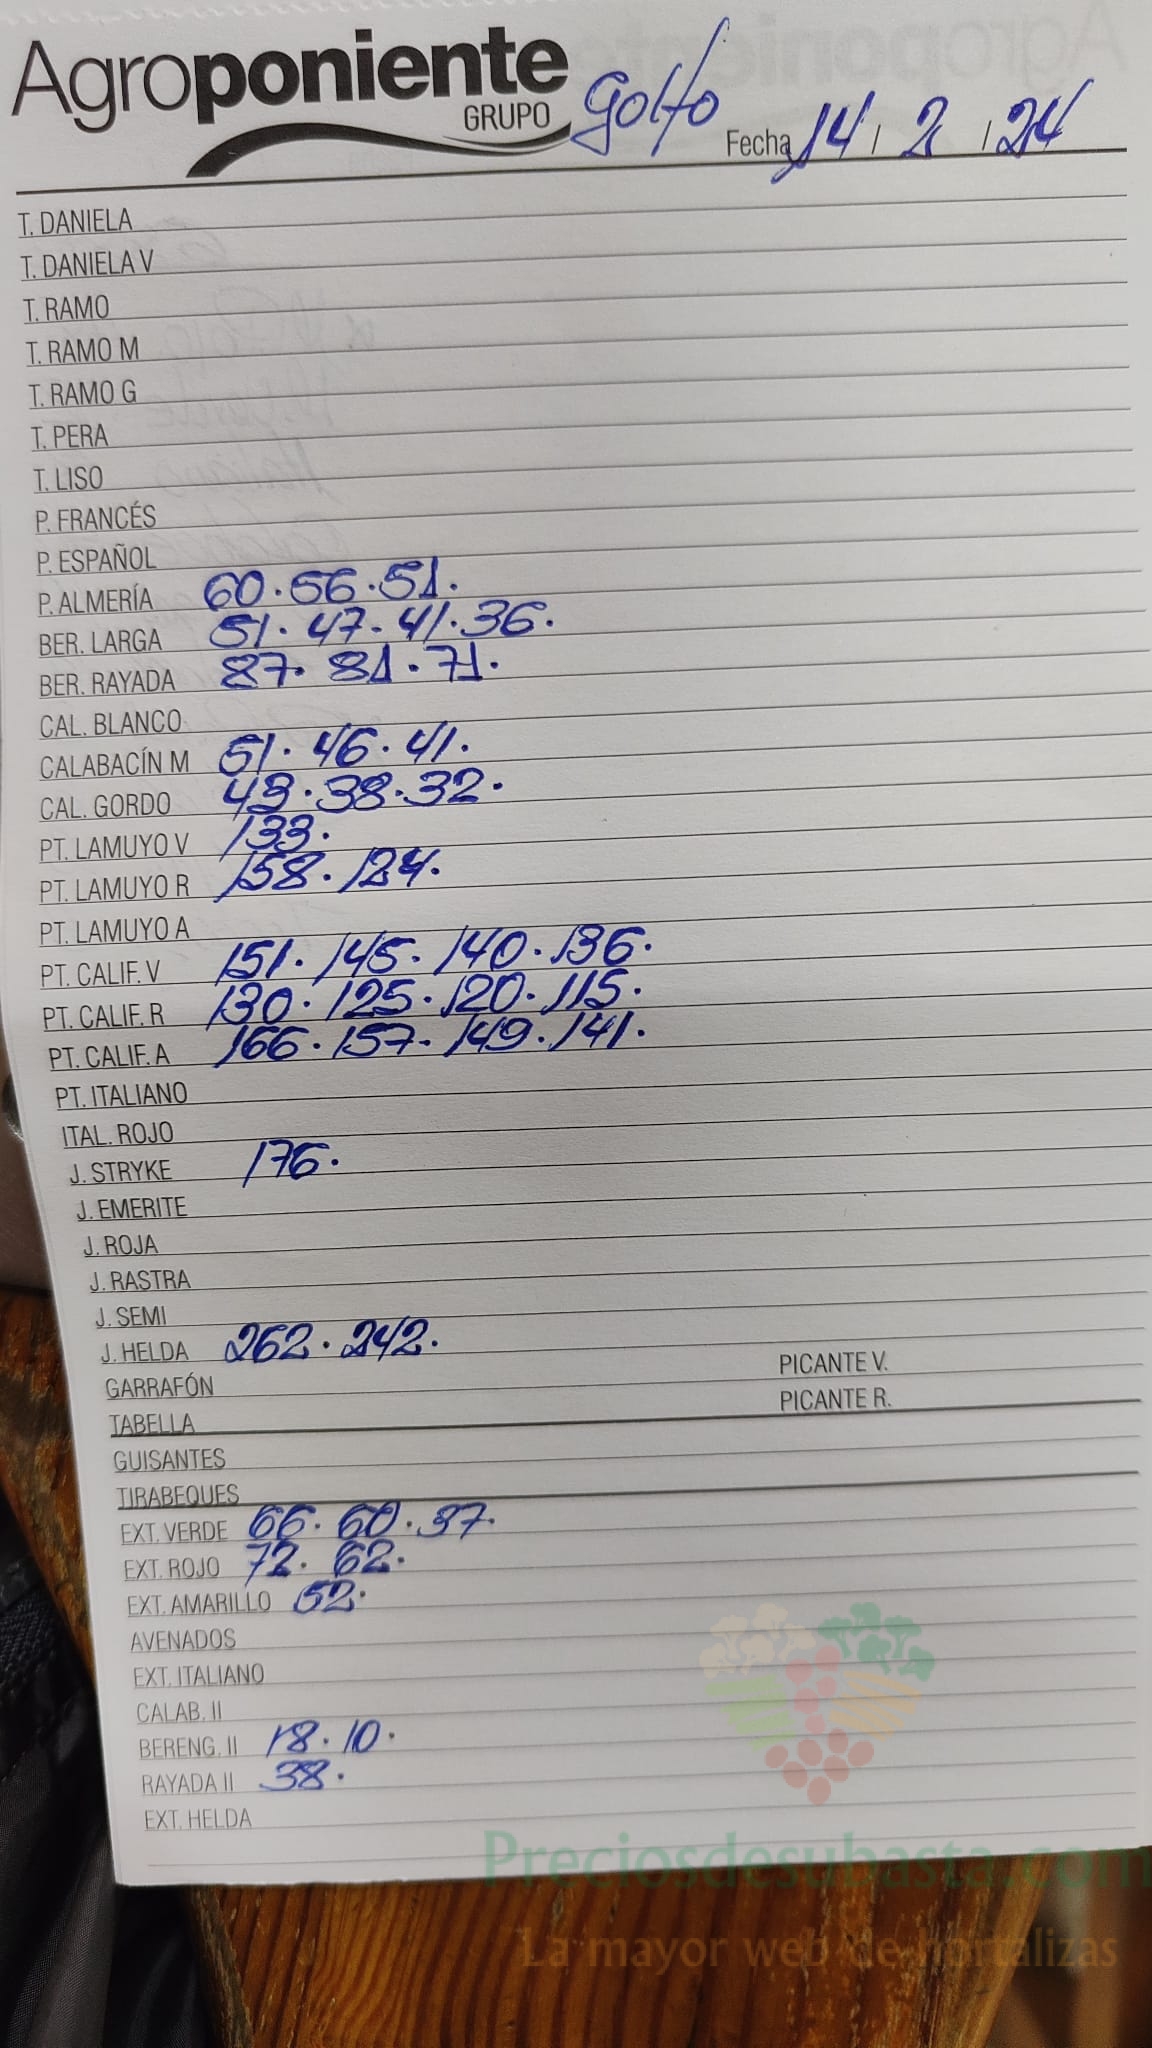 Agroponiente
GRUPO
Golfo
Fecha 14 / 2 / 24
T. DANIELA
T. DANIELA V
T. RAMO
T. RAMO M
T. RAMO G
T. PERA
T. LISO
P. FRANCÉS
P. ESPAÑOL
P. ALMERÍA 60. 56. 51.
BER. LARGA 51. 47. 41. 36.
BER. RAYADA 87. 81. 71.
CAL. BLANCO
CALABACÍN M 51. 46. 41.
CAL. GORDO 43. 38. 32.
PT. LAMUYO V 133.
PT. LAMUYO R 158. 124.
PT. LAMUYO A
PT. CALIF. V 151. 145. 140. 136.
PT. CALIF. R 130. 125. 120. 115.
PT. CALIF. A 166. 157. 149. 141.
PT. ITALIANO
ITAL. ROJO
J. STRYKE 176.
J. EMERITE
J. ROJA
J. RASTRA
J. SEMI
J. HELDA 262. 242.
PICANTE V.
GARRAFÓN
PICANTE R.
TABELLA
GUISANTES
TIRABEQUES
EXT. VERDE 66. 60. 37.
EXT. ROJO 72. 62.
EXT. AMARILLO 52.
AVENADOS
EXT. ITALIANO
CALAB. II
BERENG. II 18. 10.
RAYADA II 38.
EXT. HELDA
Preciosdesubasta.com
La mayor web de hortalizas